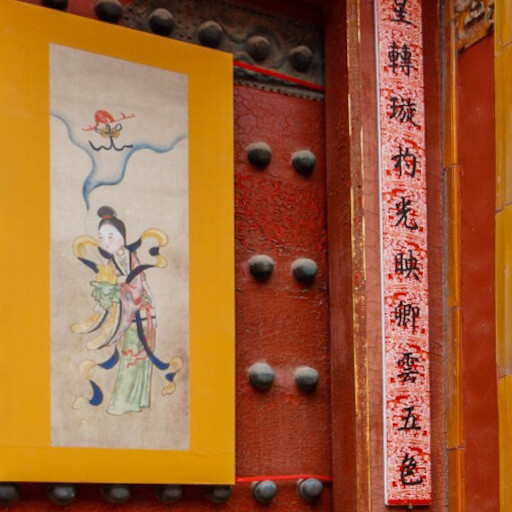 皇轉璇杓光映卿雲五色